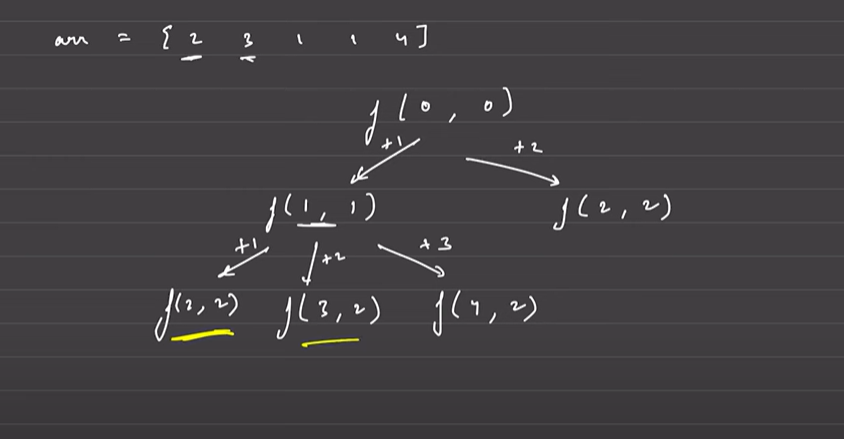 arr = [ 2 3 1 1 4 ]
f(0, 0)
+1 +2
f(1, 1) f(2, 2)
+1 +2 +3
f(2, 2) f(3, 2) f(4, 2)